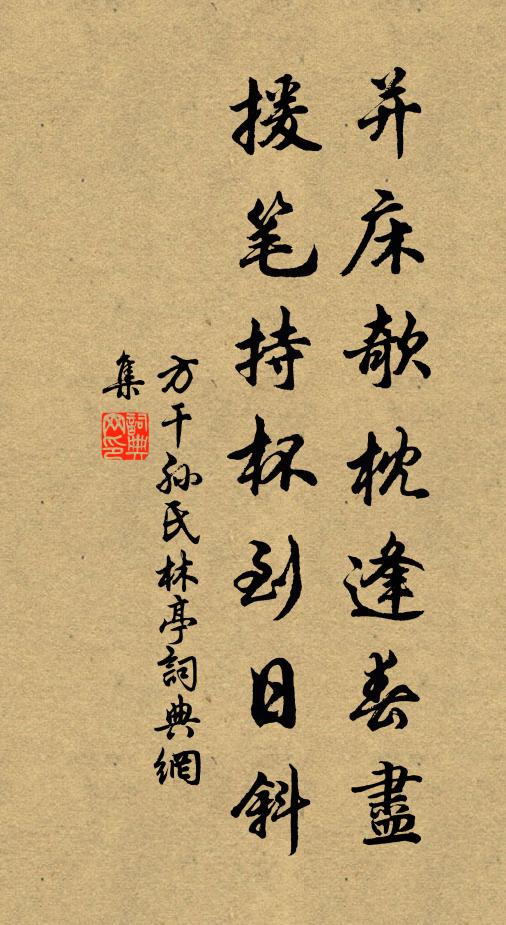 并床欹枕逢春盡
援笔持杯到日斜
方干孙氏林亭詞典網
集
詞典網印